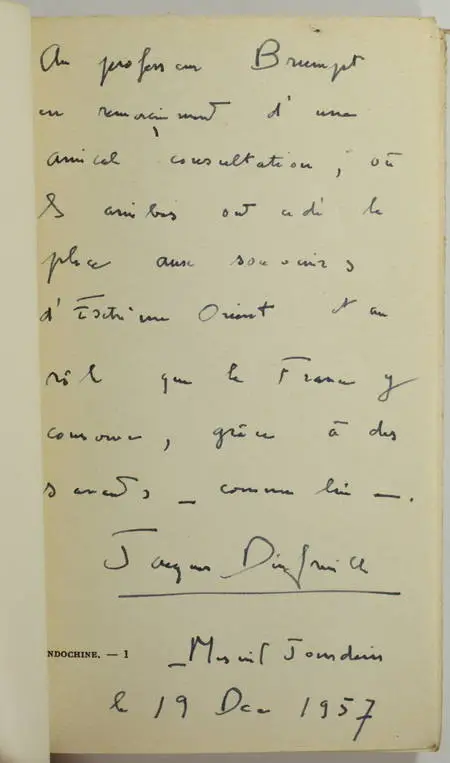 Au professeur Brumpt
en remerciement d'une
amical consultation, où
les amibes ont cédé la
place aux souvenirs
d'Extrême Orient et au
rôle que la France y
conserve, grâce à des
savants _ comme lui _.
Jacques
NDOCHINE. — 1
_ Mesnil Jourdain
le 19 Dec 1957